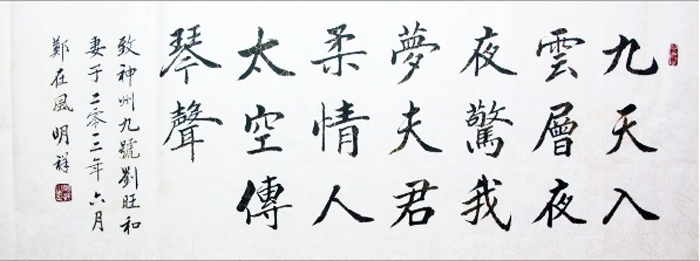 九天入
雲層夜
夜驚我
夢夫君
柔情人
太空傳
琴聲
致神州九號劉旺和
妻于二零一二年六月
鄭在風 明祥